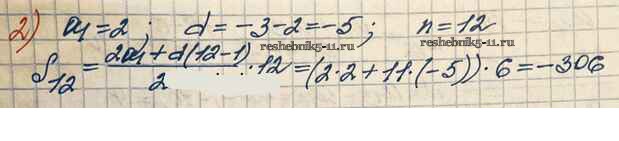 2) a₁=2; d=-3-2=-5; n=12
reshebnik5-11.ru reshebnik5-11.ru
S₁₂ = (2a₁+d(12-1))/2 · 12 = (2·2+11·(-5))·6 = -306